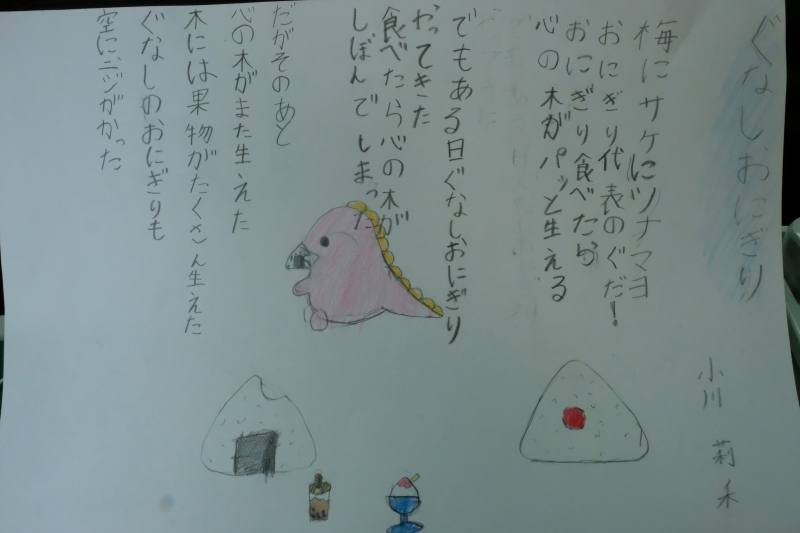 ぐなしおにぎり
小川 莉禾
梅にサケにツナマヨ
おにぎり代表のぐだ!
おにぎり食べたら
心の木がパッと生える
でもある日ぐなしおにぎり
やってきた
食べたら心の木が
しぼんでしまった
だがそのあと
心の木がまた生えた
木には果物がたくさん生えた
ぐなしのおにぎりも
空にニジがかかった